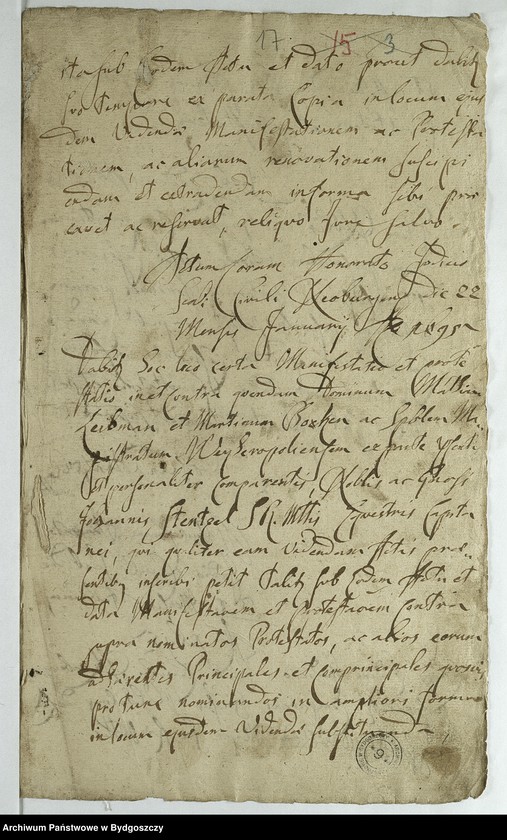 17. 15 3
ita sub eodem Actu et dato prout dabit
suo tempore ex parata Copia in locum ejus
dem Videndi Manifestationem ac Protesta
tionem, ac aliarum renovationem suscipi
endam et extradendam in forma sibi prae
cavet ac reservat, reliquo Jure salvo.
Actum coram Honorato Judicio
Civili die 22
Mensis Januarij Ao 1695
Dabit hoc loco certa Manifestatio et prote
statio in et contra quendam Dominum Mathiam
Leibman et Martinum ac Spblem Ma
gistratum Weyheropoliensem ex parte
personaliter comparentis Nobilis ac Gnosi
Joannis Stentzel S. R. Mttis Equestris Capita
nei, qui qualiter eam videndam Actis prae
sentibus inscribi petit Dabit sub eodem Actu et
dato Manifestaoem et Protestaoem contra
supra nominatos Protestatos, ac alios eorum
adhaerentes Principales et Comprincipales quosvis
pro tunc nominandos in ampliori forma
in locum ejusdem Videndi substituenda
Archiwum Państwowe w Bydgoszczy